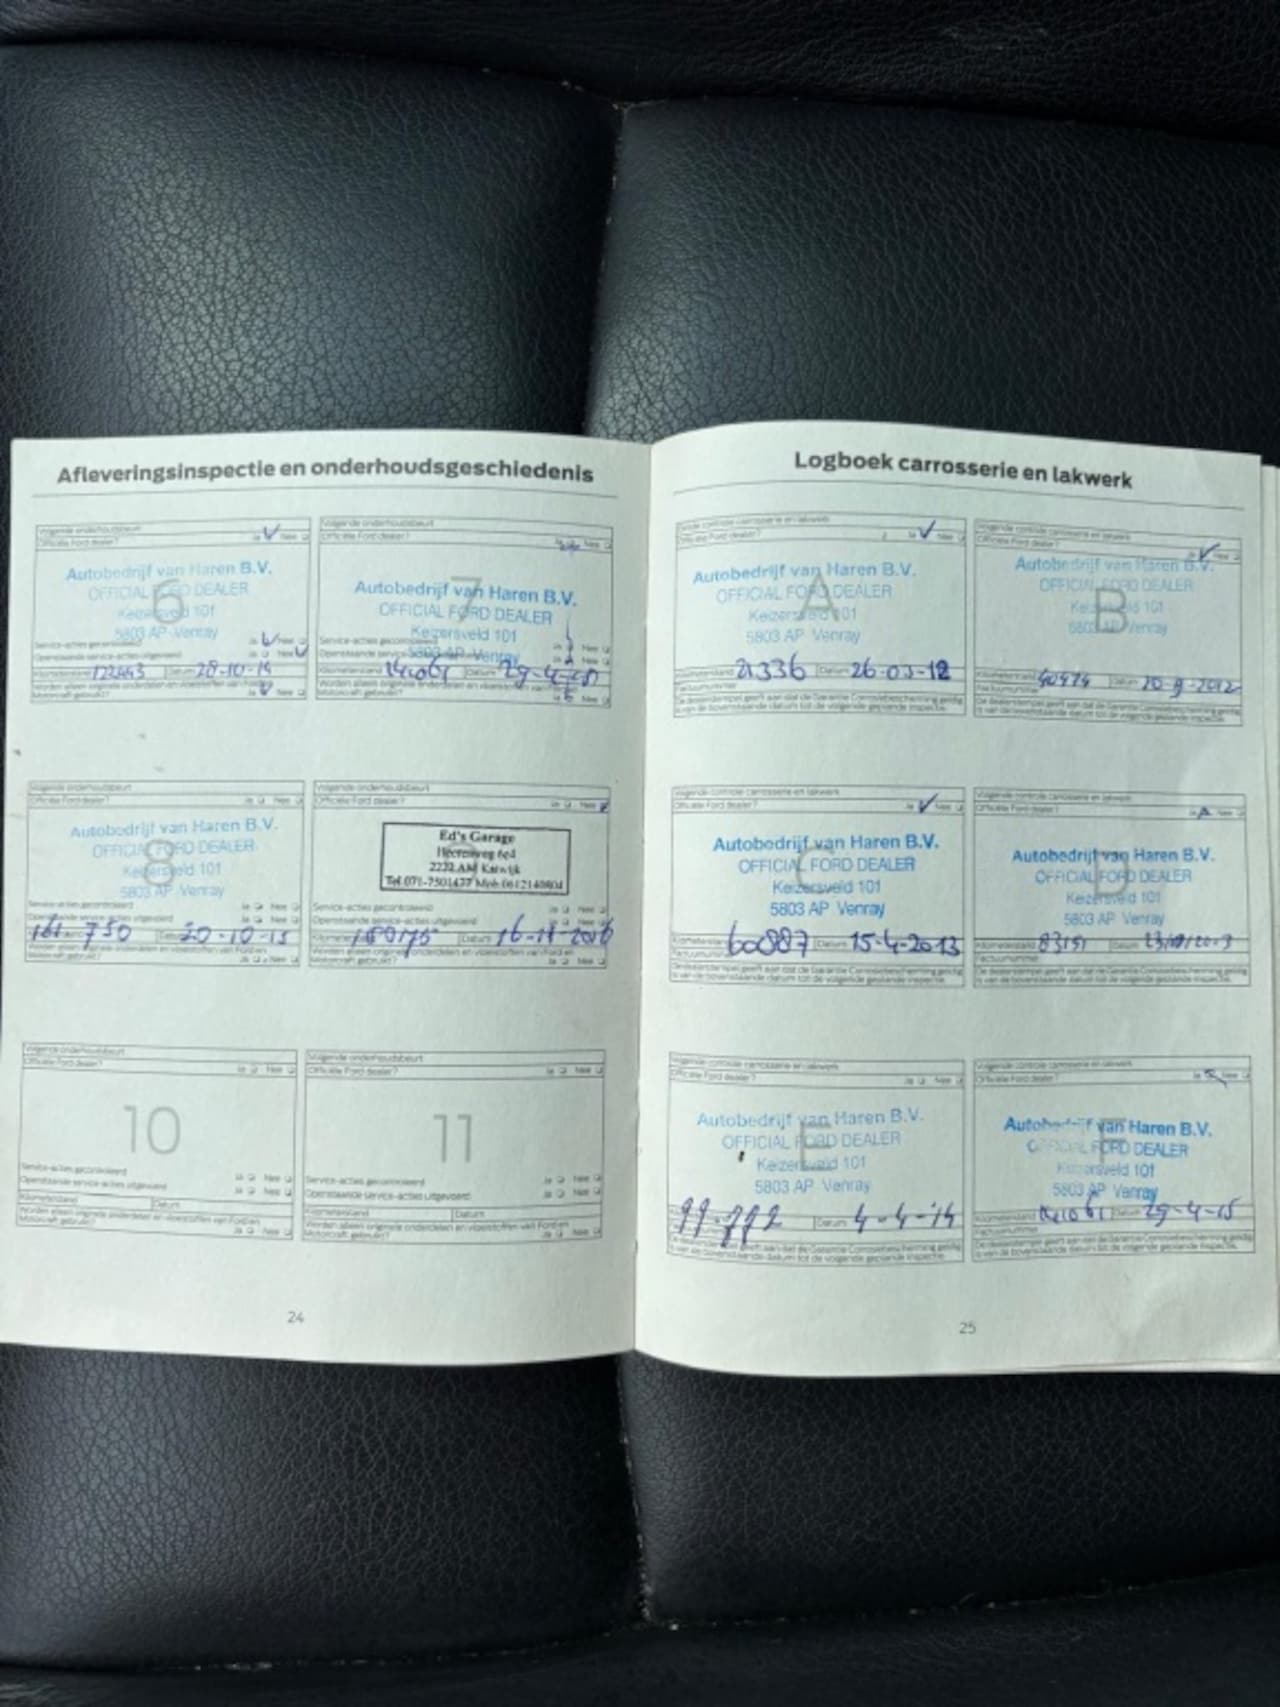 Afleveringsinspectie en onderhoudsgeschiedenis
Volgende onderhoudsbeurt
Officiële Ford dealer? Ja Nee
6
Autobedrijf van Haren B.V.
OFFICIAL FORD DEALER
Keizersveld 101
5803 AP Venray
Service-acties gecontroleerd Ja Nee
Openstaande service-acties uitgevoerd
Datum 28-10-14
Motorcraft gebruikt? Ja Nee
Volgende onderhoudsbeurt
Officiële Ford dealer? Nee
7
Autobedrijf van Haren B.V.
OFFICIAL FORD DEALER
Keizersveld 101
5803 AP Venray
Service-acties gecontroleerd Nee
Kilometerstand 141061 Datum 29-4-15
Motorcraft gebruikt? Nee
Volgende onderhoudsbeurt
Officiële Ford dealer? Ja Nee
8
Autobedrijf van Haren B.V.
OFFICIAL FORD DEALER
Keizersveld 101
5803 AP Venray
Service-acties gecontroleerd Ja Nee
Openstaande service-acties uitgevoerd Ja Nee
161.750 20-10-15
Motorcraft gebruikt? Ja Nee
Volgende onderhoudsbeurt
Officiële Ford dealer? Ja Nee
Ed's Garage
Heerenweg 6e4
2222 AM Katwijk
Tel.071-7501477 Mob.0612140804
Service-acties gecontroleerd Ja Nee
Openstaande service-acties uitgevoerd Ja Nee
180175 Datum 16-11-2016
Motorcraft gebruikt? Ja Nee
Volgende onderhoudsbeurt
Officiële Ford dealer? Ja Nee
10
Service-acties gecontroleerd Ja Nee
Openstaande service-acties uitgevoerd Ja Nee
Kilometerstand Datum
Worden alleen originele onderdelen en vloeistoffen van Ford en
Motorcraft gebruikt? Ja Nee
Volgende onderhoudsbeurt
Officiële Ford dealer? Ja Nee
11
Service-acties gecontroleerd Ja Nee
Openstaande service-acties uitgevoerd Ja Nee
Kilometerstand Datum
Worden alleen originele onderdelen en vloeistoffen van Ford en
Motorcraft gebruikt? Ja Nee
24
Logboek carrosserie en lakwerk
Volgende controle carrosserie en lakwerk
Officiële Ford dealer? Ja Nee
A
Autobedrijf van Haren B.V.
OFFICIAL FORD DEALER
Keizersveld 101
5803 AP Venray
21336 Datum 26-03-12
Factuurnummer
De dealerstempel geeft aan dat de Garantie Carrosseriebescherming geldig
is van de bovenstaande datum tot de volgende geplande inspectie.
Volgende controle carrosserie en lakwerk
Officiële Ford dealer? Nee
B
Autobedrijf van Haren B.V.
OFFICIAL FORD DEALER
Keizersveld 101
5803 AP Venray
Kilometerstand 40974 Datum 20-9-2012
Factuurnummer
De dealerstempel geeft aan dat de Garantie Carrosseriebescherming geldig
is van de bovenstaande datum tot de volgende geplande inspectie.
Volgende controle carrosserie en lakwerk
Officiële Ford dealer? Ja Nee
C
Autobedrijf van Haren B.V.
OFFICIAL FORD DEALER
Keizersveld 101
5803 AP Venray
60887 Datum 15-4-2013
Factuurnummer
De dealerstempel geeft aan dat de Garantie Carrosseriebescherming geldig
is van de bovenstaande datum tot de volgende geplande inspectie.
Volgende controle carrosserie en lakwerk
Officiële Ford dealer? Nee
D
Autobedrijf van Haren B.V.
OFFICIAL FORD DEALER
Keizersveld 101
5803 AP Venray
Kilometerstand 83151 Datum
Factuurnummer
De dealerstempel geeft aan dat de Garantie Carrosseriebescherming geldig
is van de bovenstaande datum tot de volgende geplande inspectie.
Volgende controle carrosserie en lakwerk
Officiële Ford dealer? Ja Nee
E
Autobedrijf van Haren B.V.
OFFICIAL FORD DEALER
Keizersveld 101
5803 AP Venray
99.772 Datum 4-4-14
De dealerstempel geeft aan dat de Garantie Carrosseriebescherming geldig
is van de bovenstaande datum tot de volgende geplande inspectie.
Volgende controle carrosserie en lakwerk
Officiële Ford dealer? Ja Nee
F
Autobedrijf van Haren B.V.
OFFICIAL FORD DEALER
Keizersveld 101
5803 AP Venray
Kilometerstand 141061 Datum 29-4-15
Factuurnummer
De dealerstempel geeft aan dat de Garantie Carrosseriebescherming geldig
is van de bovenstaande datum tot de volgende geplande inspectie.
25